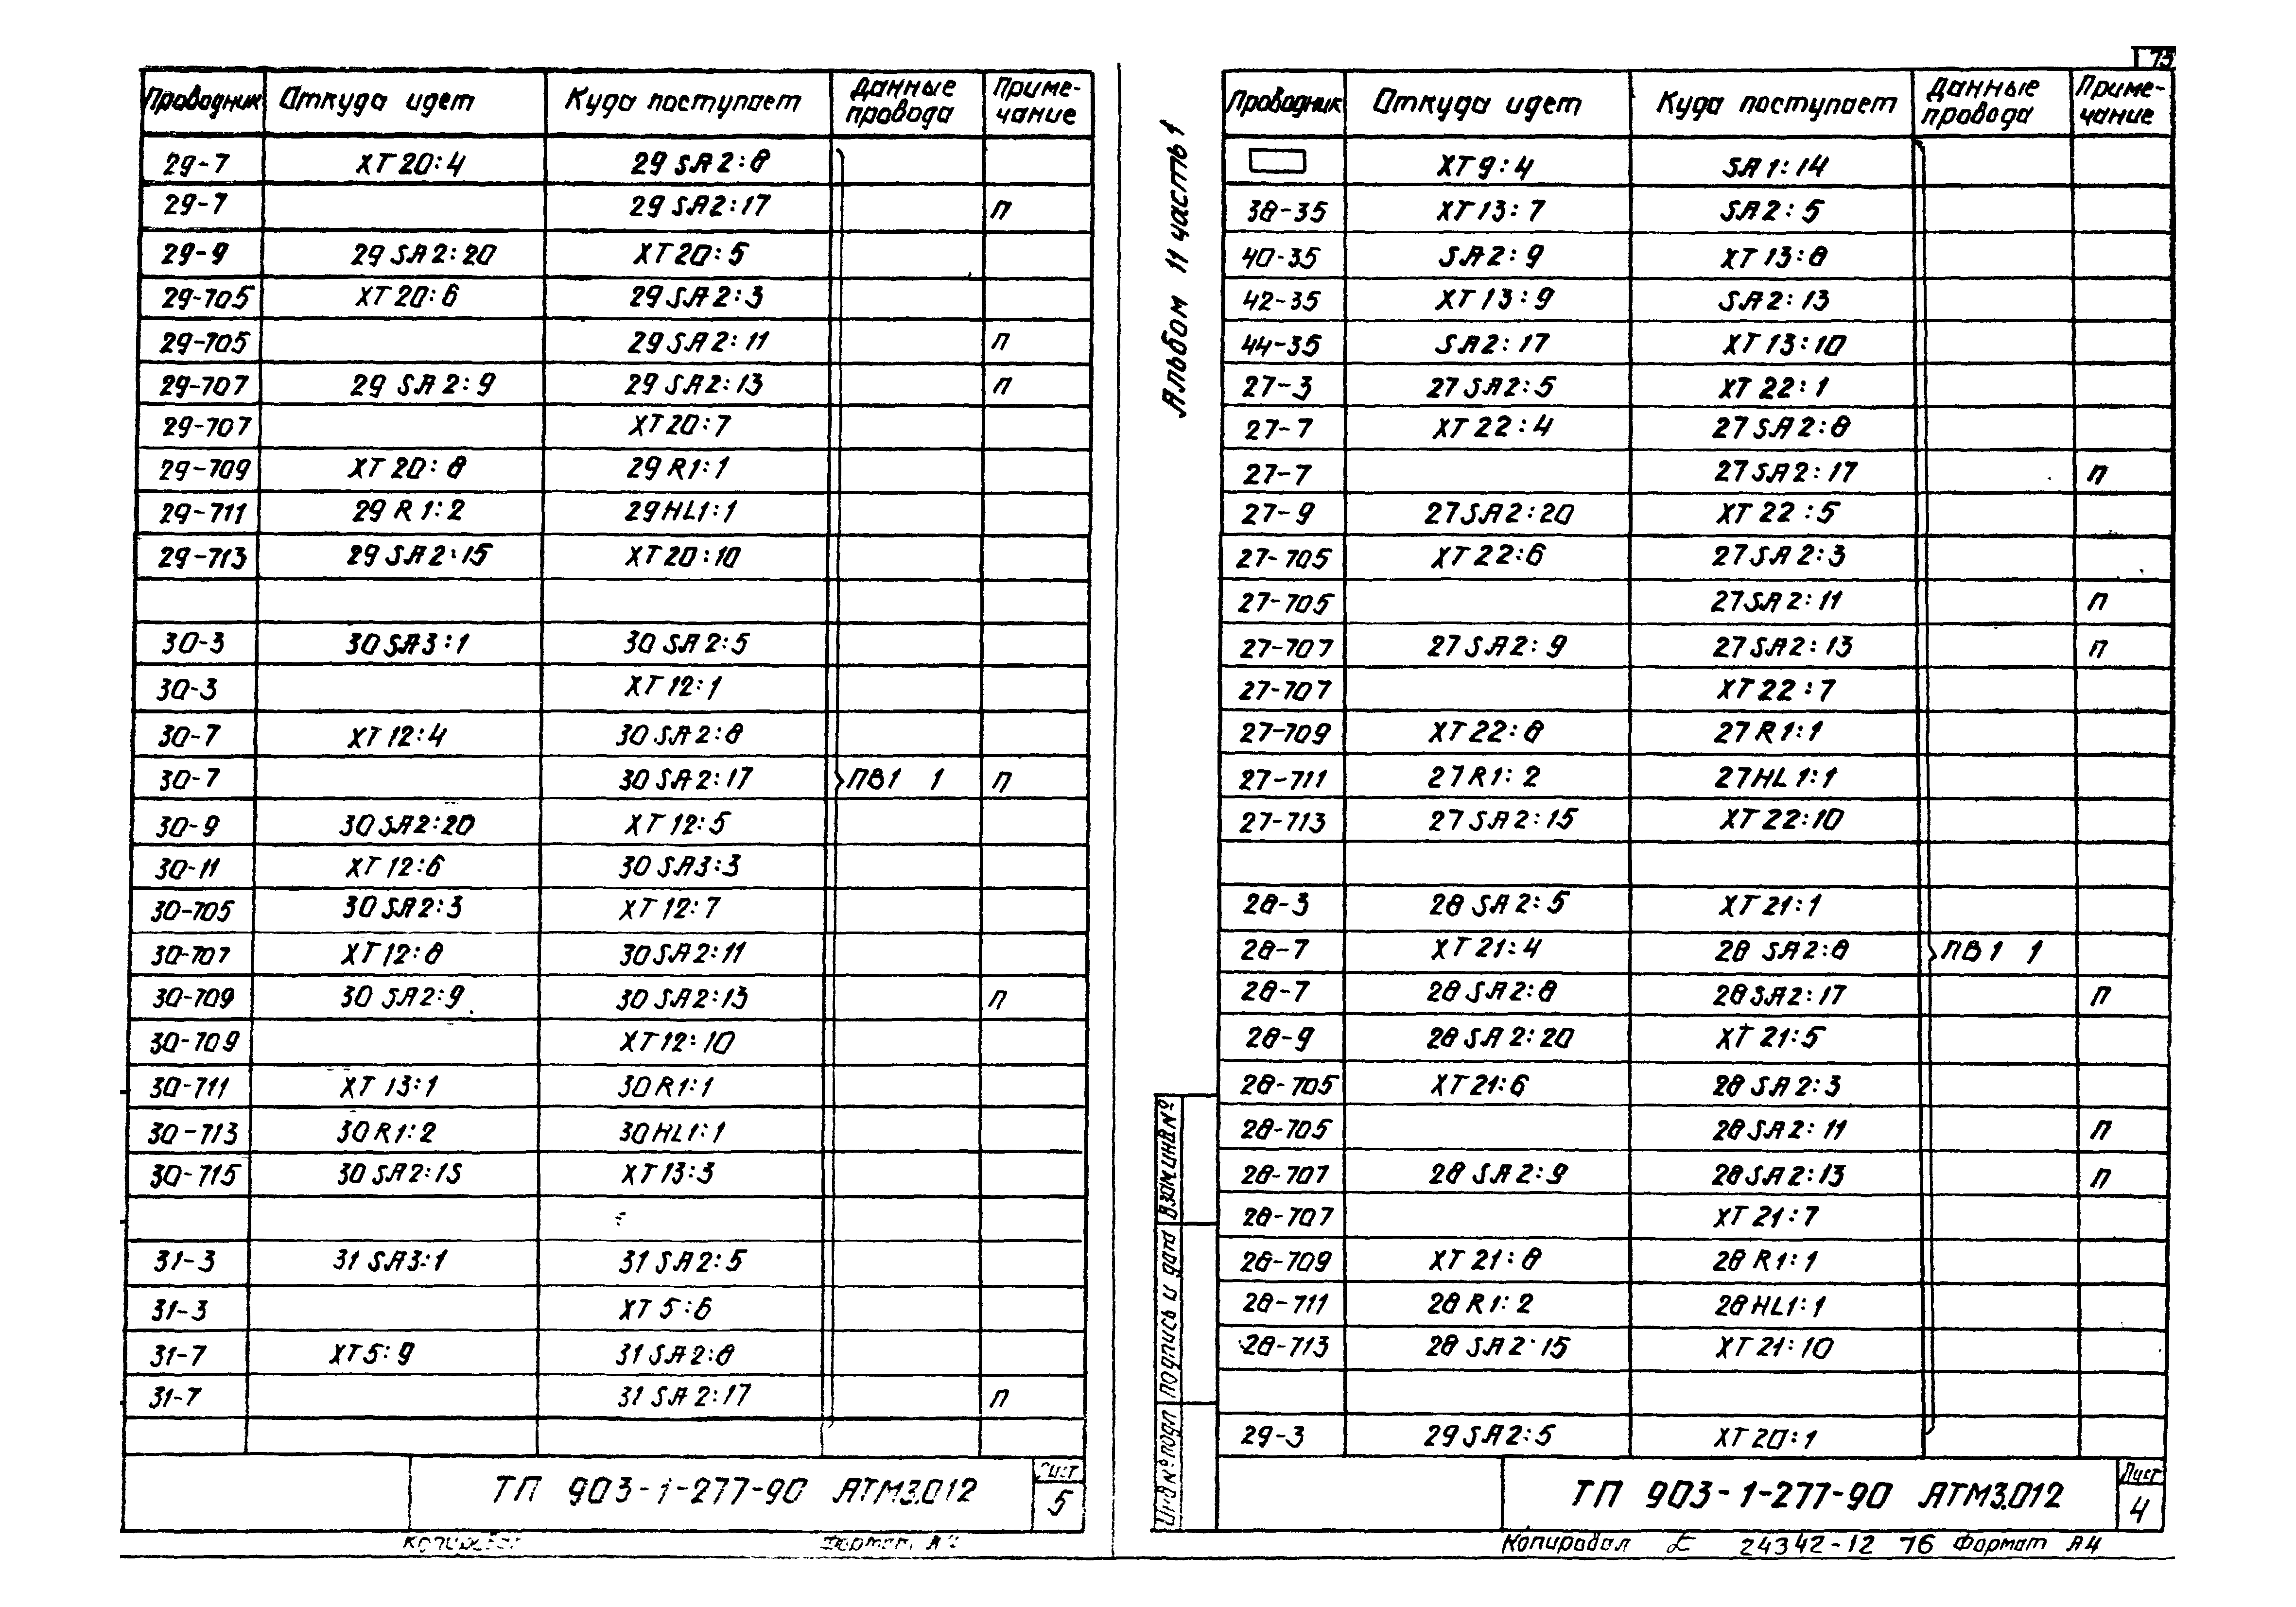 Проводник Откуда идет Куда поступает Данные провода Примечание
29-7 XT20:4 29SA2:8
29-7 29SA2:17 п
29-9 29SA2:20 XT20:5
29-705 XT20:6 29SA2:3
29-705 29SA2:11 п
29-707 29SA2:9 29SA2:13 п
29-707 XT20:7
29-709 XT20:8 29R1:1
29-711 29R1:2 29HL1:1
29-713 29SA2:15 XT20:10
30-3 30SA3:1 30SA2:5
30-3 XT12:1
30-7 XT12:4 30SA2:8
30-7 30SA2:17 ПВ1 1 п
30-9 30SA2:20 XT12:5
30-11 XT12:6 30SA3:3
30-705 30SA2:3 XT12:7
30-707 XT12:8 30SA2:11
30-709 30SA2:9 30SA2:13 п
30-709 XT12:10
30-711 XT13:1 30R1:1
30-713 30R1:2 30HL1:1
30-715 30SA2:15 XT13:3
31-3 31SA3:1 31SA2:5
31-3 XT5:6
31-7 XT5:9 31SA2:8
31-7 31SA2:17 п
ТП 903-1-277-90 АТМ3.012
Лист
5
Копировал Формат А4
75
Альбом 11 часть 1
Проводник Откуда идет Куда поступает Данные провода Примечание
XT9:4 SA1:14
38-35 XT13:7 SA2:5
40-35 SA2:9 XT13:8
42-35 XT13:9 SA2:13
44-35 SA2:17 XT13:10
27-3 27SA2:5 XT22:1
27-7 XT22:4 27SA2:8
27-7 27SA2:17 п
27-9 27SA2:20 XT22:5
27-705 XT22:6 27SA2:3
27-705 27SA2:11 п
27-707 27SA2:9 27SA2:13 п
27-707 XT22:7
27-709 XT22:8 27R1:1
27-711 27R1:2 27HL1:1
27-713 27SA2:15 XT22:10
28-3 28SA2:5 XT21:1
28-7 XT21:4 28SA2:8 ПВ1 1
28-7 28SA2:8 28SA2:17 п
28-9 28SA2:20 XT21:5
28-705 XT21:6 28SA2:3
28-705 28SA2:11 п
28-707 28SA2:9 28SA2:13 п
28-707 XT21:7
28-709 XT21:8 28R1:1
28-711 28R1:2 28HL1:1
28-713 28SA2:15 XT21:10
29-3 29SA2:5 XT20:1
Инв№подл Подпись и дата Взам.инв№
ТП 903-1-277-90 АТМ3.012
Лист
4
Копировал 24342-12 76 Формат А4